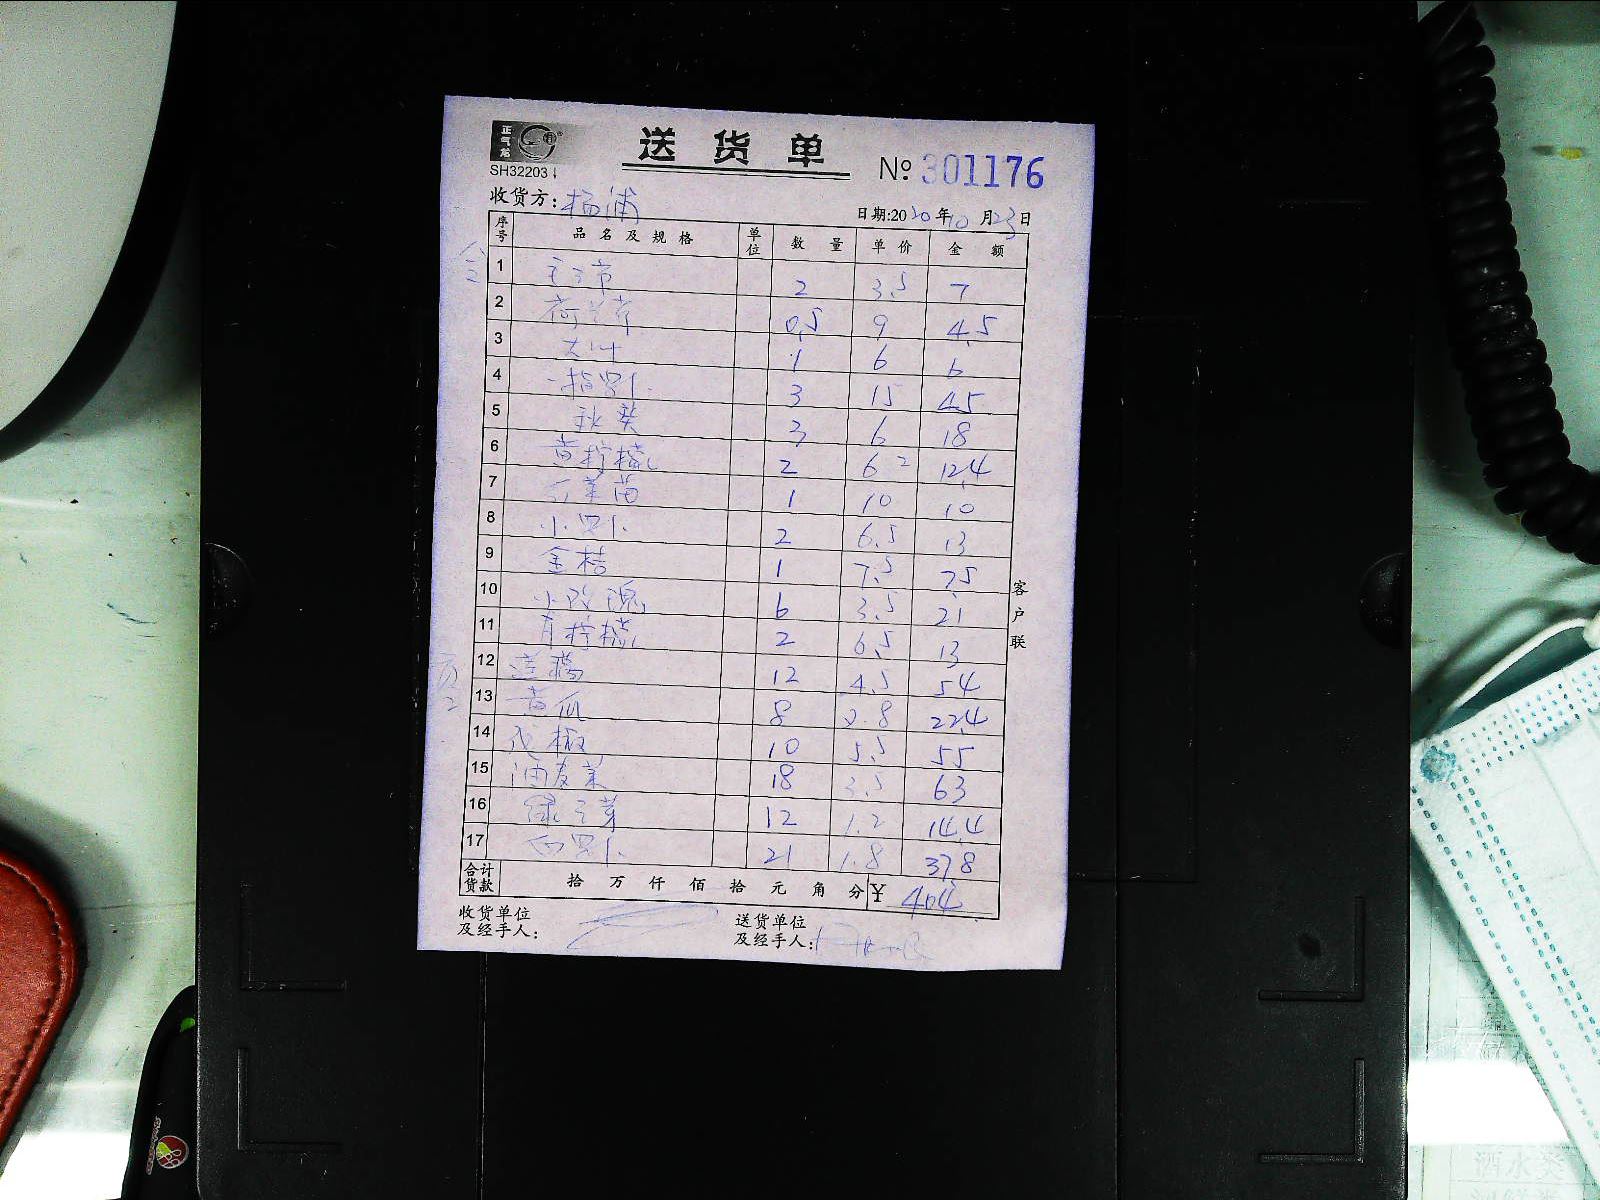 正气龙
送货单
№ 301176
SH32203
收货方: 杨浦
日期:2020年10月23日
序号 品名及规格 单位 数量 单价 金额
1 2 3.5 7
2 荷兰芹 0.5 9 4.5
3 大叶 1 6 6
4 一指罗卜 3 15 45
5 秋葵 3 6 18
6 黄柠檬 2 6.2 12.4
7 苗 1 10 10
8 小罗卜 2 6.5 13
9 金桔 1 7.5 7.5
10 小玫瑰 6 3.5 21
11 青柠檬 2 6.5 13
12 12 4.5 54
13 黄瓜 8 2.8 22.4
14 椒 10 5.5 55
15 油麦菜 18 3.5 63
16 绿豆芽 12 1.2 14.4
17 白罗卜 21 1.8 37.8
合计货款 拾万仟佰拾元角分 ¥ 404
客户联
收货单位及经手人:
送货单位及经手人:
酒水类